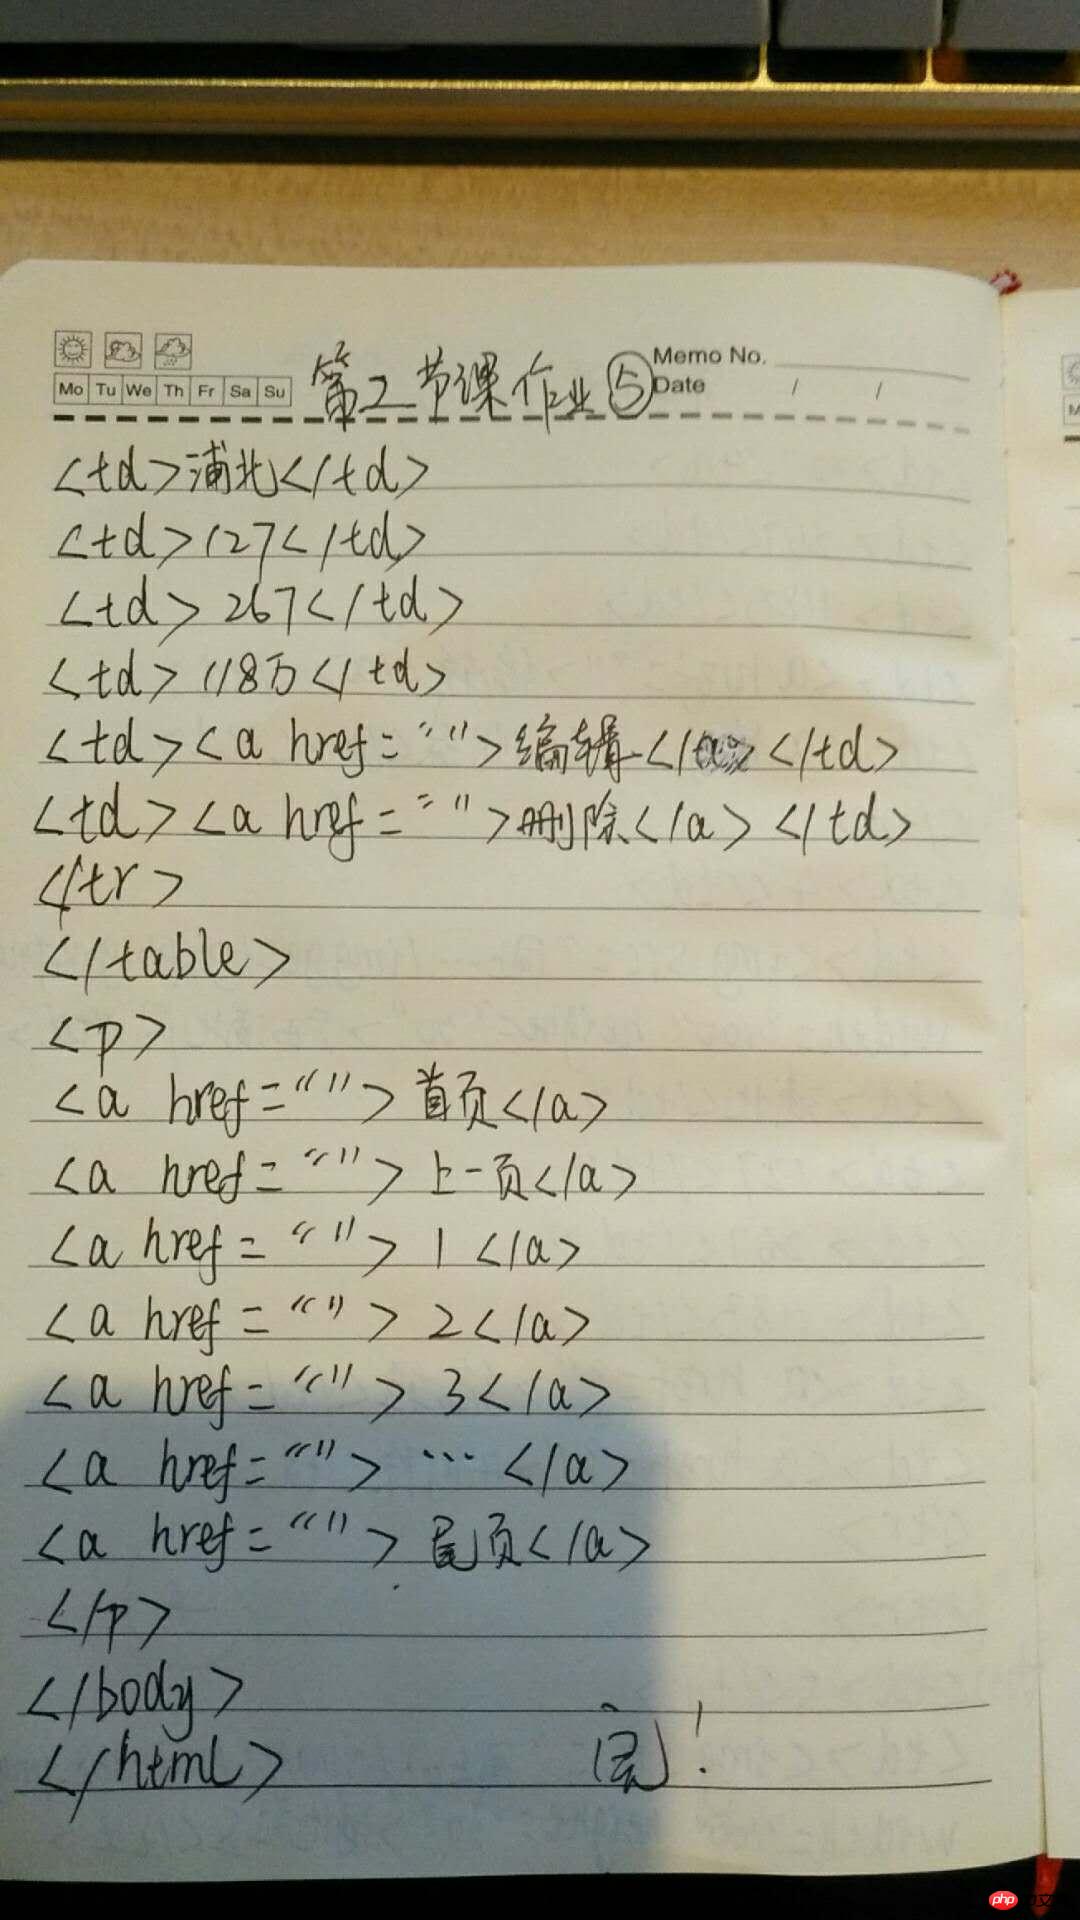 第二节课作业⑤
Memo No.
Mo Tu We Th Fr Sa Su
Date / /
<td>浦北</td>
<td>127</td>
<td>267</td>
<td>118万</td>
<td><a href="">编辑</a></td>
<td><a href="">删除</a></td>
</tr>
</table>
<p>
<a href="">首页</a>
<a href="">上一页</a>
<a href="">1</a>
<a href="">2</a>
<a href="">3</a>
<a href="">…</a>
<a href="">尾页</a>
</p>
</body>
</html> 完!
php